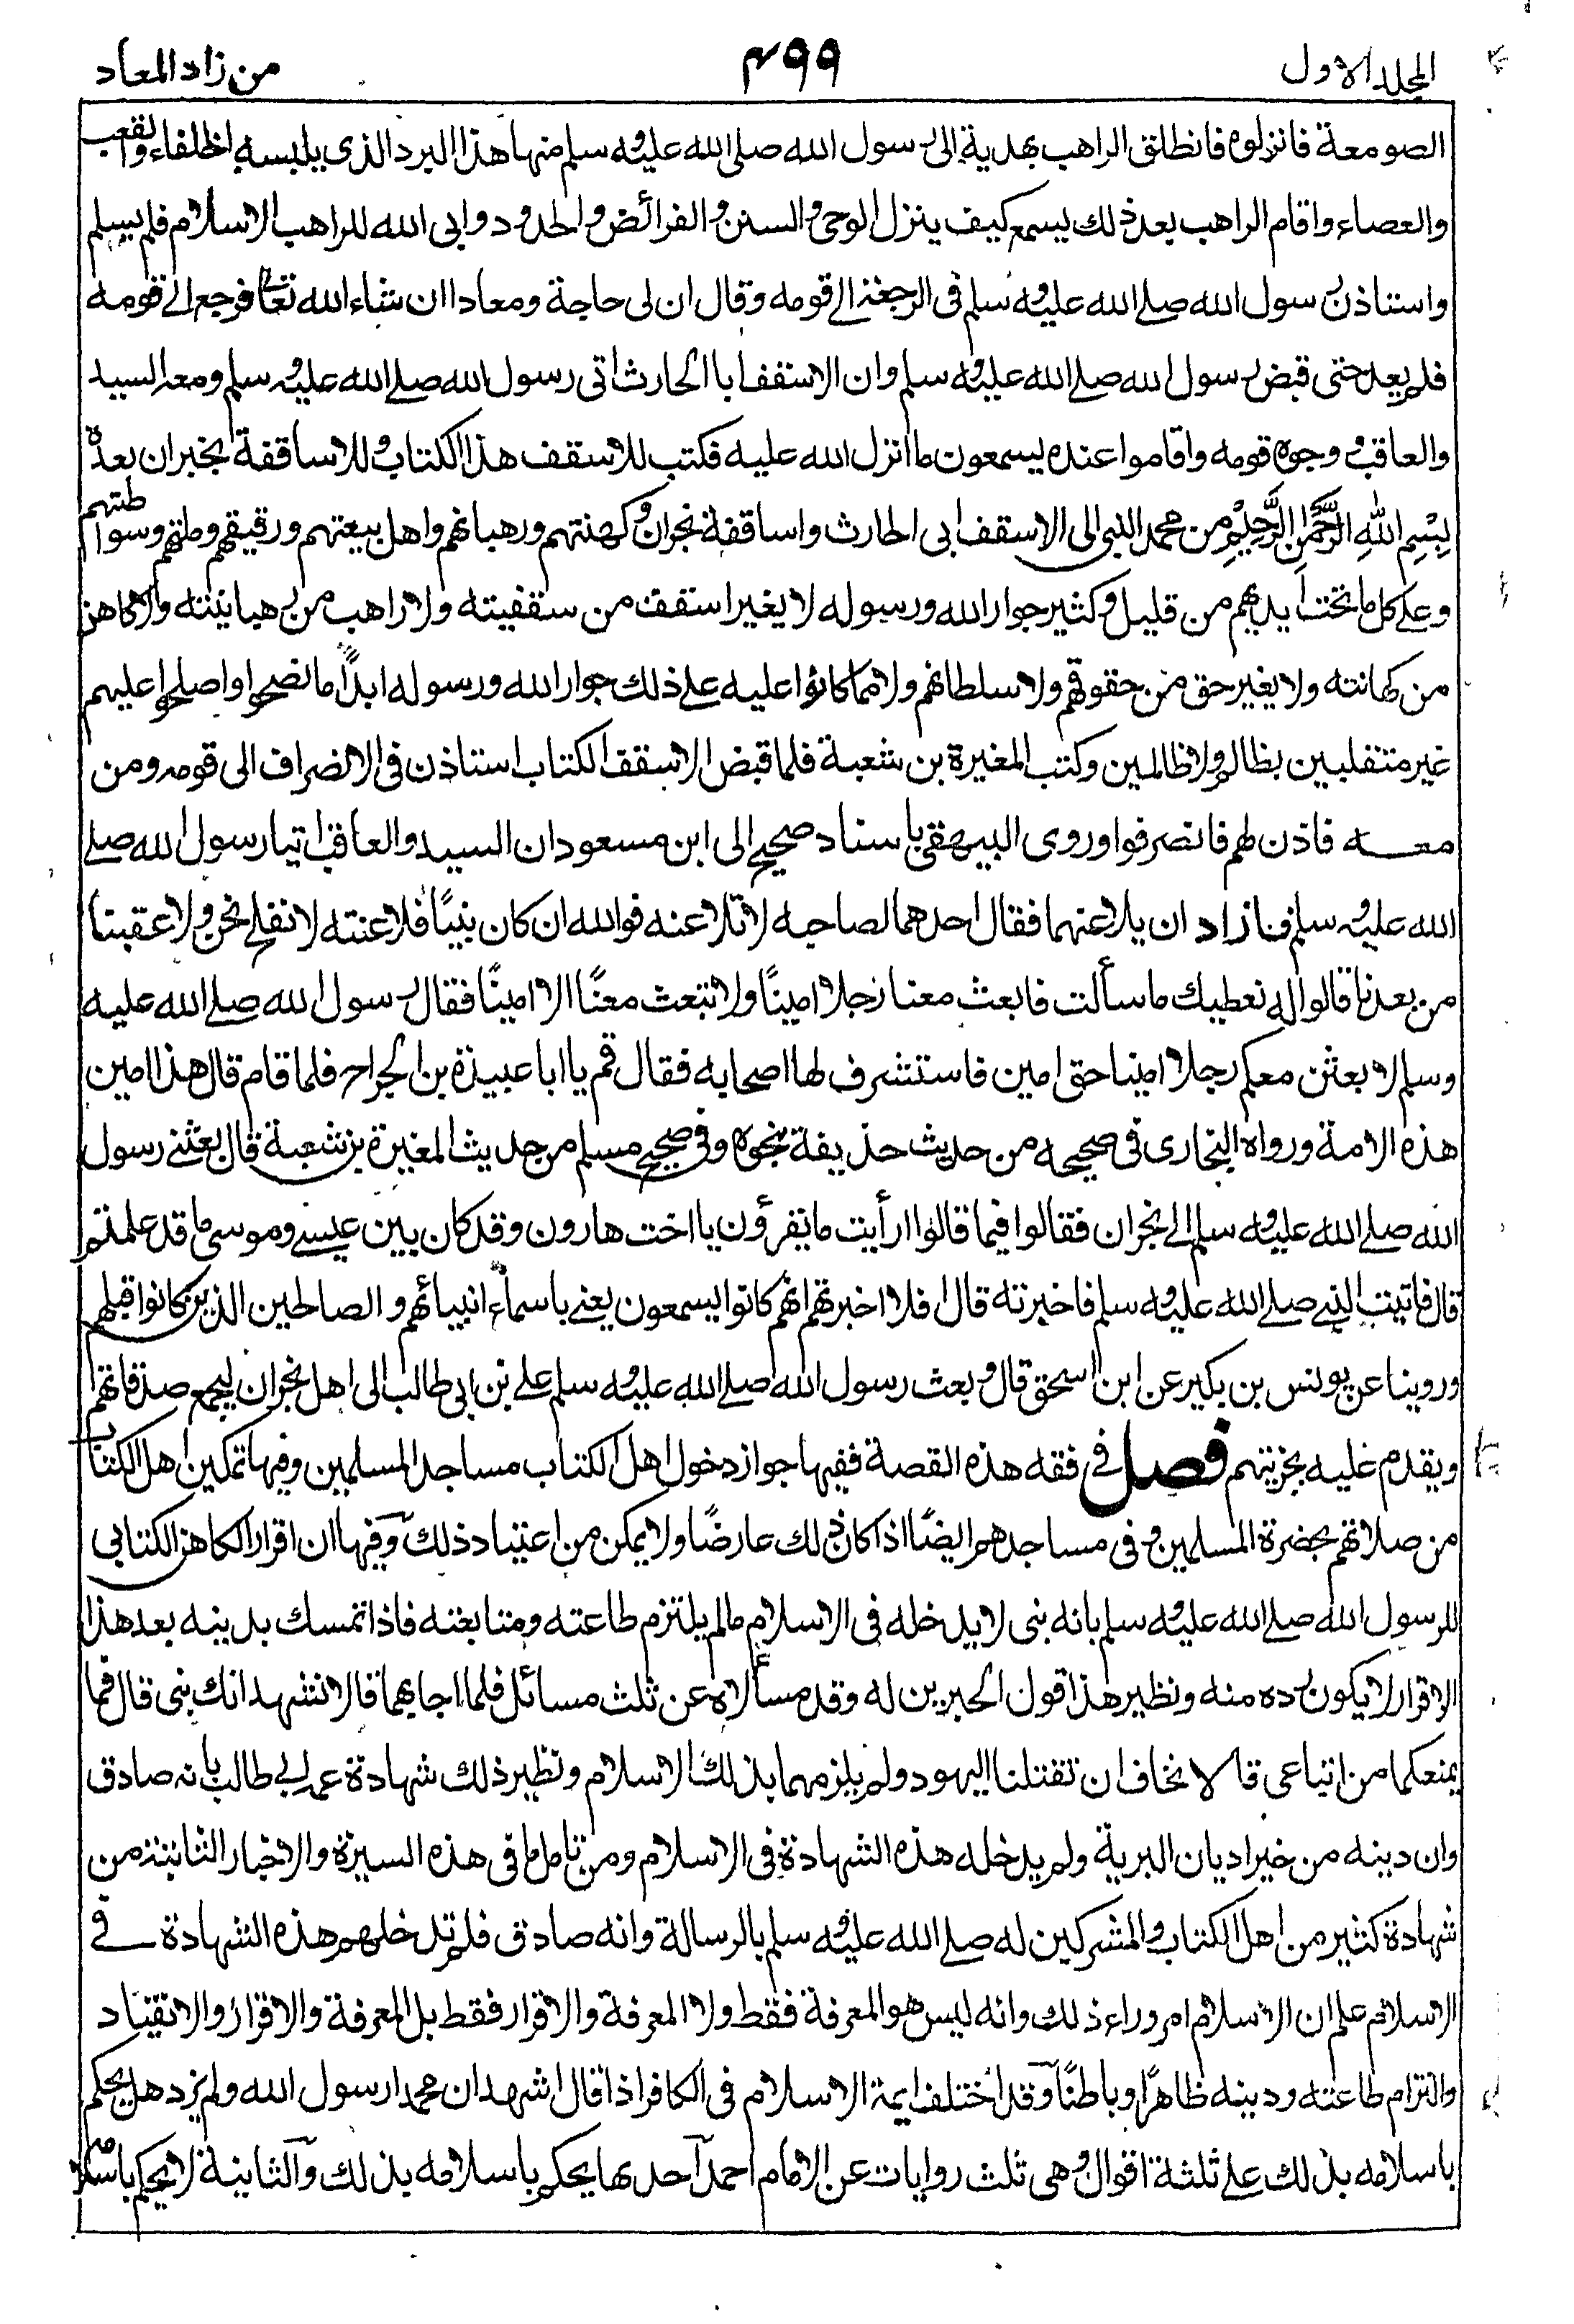 المجلد الاول
٤٩٩
من زاد المعاد
الصومعة فانزلوه فانطلق الراهب بهدية الى رسول الله صلى الله عليه وسلم منها هذا البرد الذى يلبسه الخلفاء والقعب
والعصاء واقام الراهب بعد ذلك يسمع كيف ينزل الوحى والسنن والفرائض والحدود وابى الله للراهب الاسلام فلم يسلم
واستاذن رسول الله صلے الله عليه وسلم فى الرجعة الے قومه وقال ان لى حاجة ومعادا ان شاء الله تعالے فرجع الے قومه
فلم يعد حتى قبض رسول الله صلے الله عليه وسلم وان الاسقف ابا الحارث اتى رسول الله صلے الله عليه وسلم ومعه السيد
والعاقب وجوه قومه واقاموا عنده يسمعون ما انزل الله عليه فكتب للاسقف هذا الكتاب وللاساقفة بنجران بعده
بِسْمِ اللهِ الرَّحْمٰنِ الرَّحِيْمِ من محمد النبى الى الاسقف ابى الحارث واساقفة نجران وكهنتهم ورهبانهم واهل بيعتهم ورقيقهم وملتهم وسواطتهم
وعلے كل ما تحت ايديهم من قليل وكثير جوار الله ورسوله لا يغير اسقف من سقفيته ولا راهب من رهبانيته ولا كاهن
من كهانته ولا يغير حق من حقوقهم ولا سلطانهم ولا مما كانوا عليه علے ذلك جوار الله ورسوله ابدًا ما نصحوا واصلحوا عليهم
غير متقلبين بظالم ولا ظالمين وكتب المغيرة بن شعبة فلما قبض الاسقف الكتاب استاذن فى الانصراف الى قومه ومن
معه فاذن لهم فانصرفوا وروى البيهقى باسناد صحيح الى ابن مسعود ان السيد والعاقب اتيا رسول الله صلے
الله عليه وسلم فنازاد ان يلاعنهما فقال احدهما لصاحبه لا تلاعنه فوالله ان كان نبيًا فلاعنته لا نفلح نحن ولا عقبنا
من بعدنا قالوا له نعطيك ما سألت فابعث معنا رجلا امينًا ولا تبعث معنا الا امينًا فقال رسول الله صلے الله عليه
وسلم لابعثن معكم رجلا امينا حق امين فاستشرف لها اصحابه فقال قم يا ابا عبيدة بن الجراح فلما قام قال هذا امين
هذه الامة ورواه البخارى فى صحيحه من حديث حذيفة بنحوه وفى صحيح مسلم من حديث المغيرة بن شعبة قال بعثنے رسول
الله صلے الله عليه وسلم الے نجران فقالوا فيما قالوا ارأيت ما تقرؤن يا اخت هارون وقد كان بين عيسے وموسى ما قد علمتم
قال فاتيت النبے صلے الله عليه وسلم فاخبرته قال افلا اخبرتهم انهم كانوا يسمعون يعنے باسماء انبيائهم والصالحين الذين كانوا قبلهم
وروينا عن يونس بن بكير عن ابن اسحق قال وبعث رسول الله صلے الله عليه وسلم علے بن ابى طالب الى اهل نجران ليجمع صدقاتهم
ويقدم عليه بجزيتهم فصل فى فقه هذه القصة ففيها جواز دخول اهل الكتاب مساجد المسلمين وفيها تمكين اهل الكتاب
من صلاتهم بحضرة المسلمين وفى مساجدهم ايضًا اذا كان ذلك عارضًا ولا يمكن من اعتياد ذلك وفيها ان اقرار الكاهن الكتابى
للرسول الله صلے الله عليه وسلم بانه نبى لا يدخله فى الاسلام مالم يلتزم طاعته ومتابعته فاذا تمسك بدينه بعد هذا
الاقرار لا يكون رده منه ونظير هذا قول الحبرين له وقد مسألاه عن ثلث مسائل فلما اجابهما قالا نشهد انك نبى قال فما
يمنعكما من اتباعى قالا نخاف ان تقتلنا اليهود ولم يلزمهما بذلك الاسلام ونظير ذلك شهادة عمه ابى طالب بانه صادق
وان دينه من خير اديان البرية ولم يدخله هذه الشهادة فى الاسلام ومن تامل ما فى هذه السيرة والاخبار الثابتة من
شهادة كثير من اهل الكتاب والمشركين له صلے الله عليه وسلم بالرسالة وانه صادق فلم تدخلهم هذه الشهادة فے
الاسلام علم ان الاسلام امر وراء ذلك وانه ليس هو المعرفة فقط ولا المعرفة والاقرار فقط بل المعرفة والاقرار والانقياد
والتزام طاعته ودينه ظاهرًا وباطنًا وقد اختلف ايمة الاسلام فى الكافر اذا قال اشهد ان محمدا رسول الله ولم يزد هل يحكم
باسلامه بذلك علے ثلثة اقوال وهى ثلث روايات عن الامام احمد احدىها يحكم باسلامه بذلك والثانية لا يحكم باسلامه